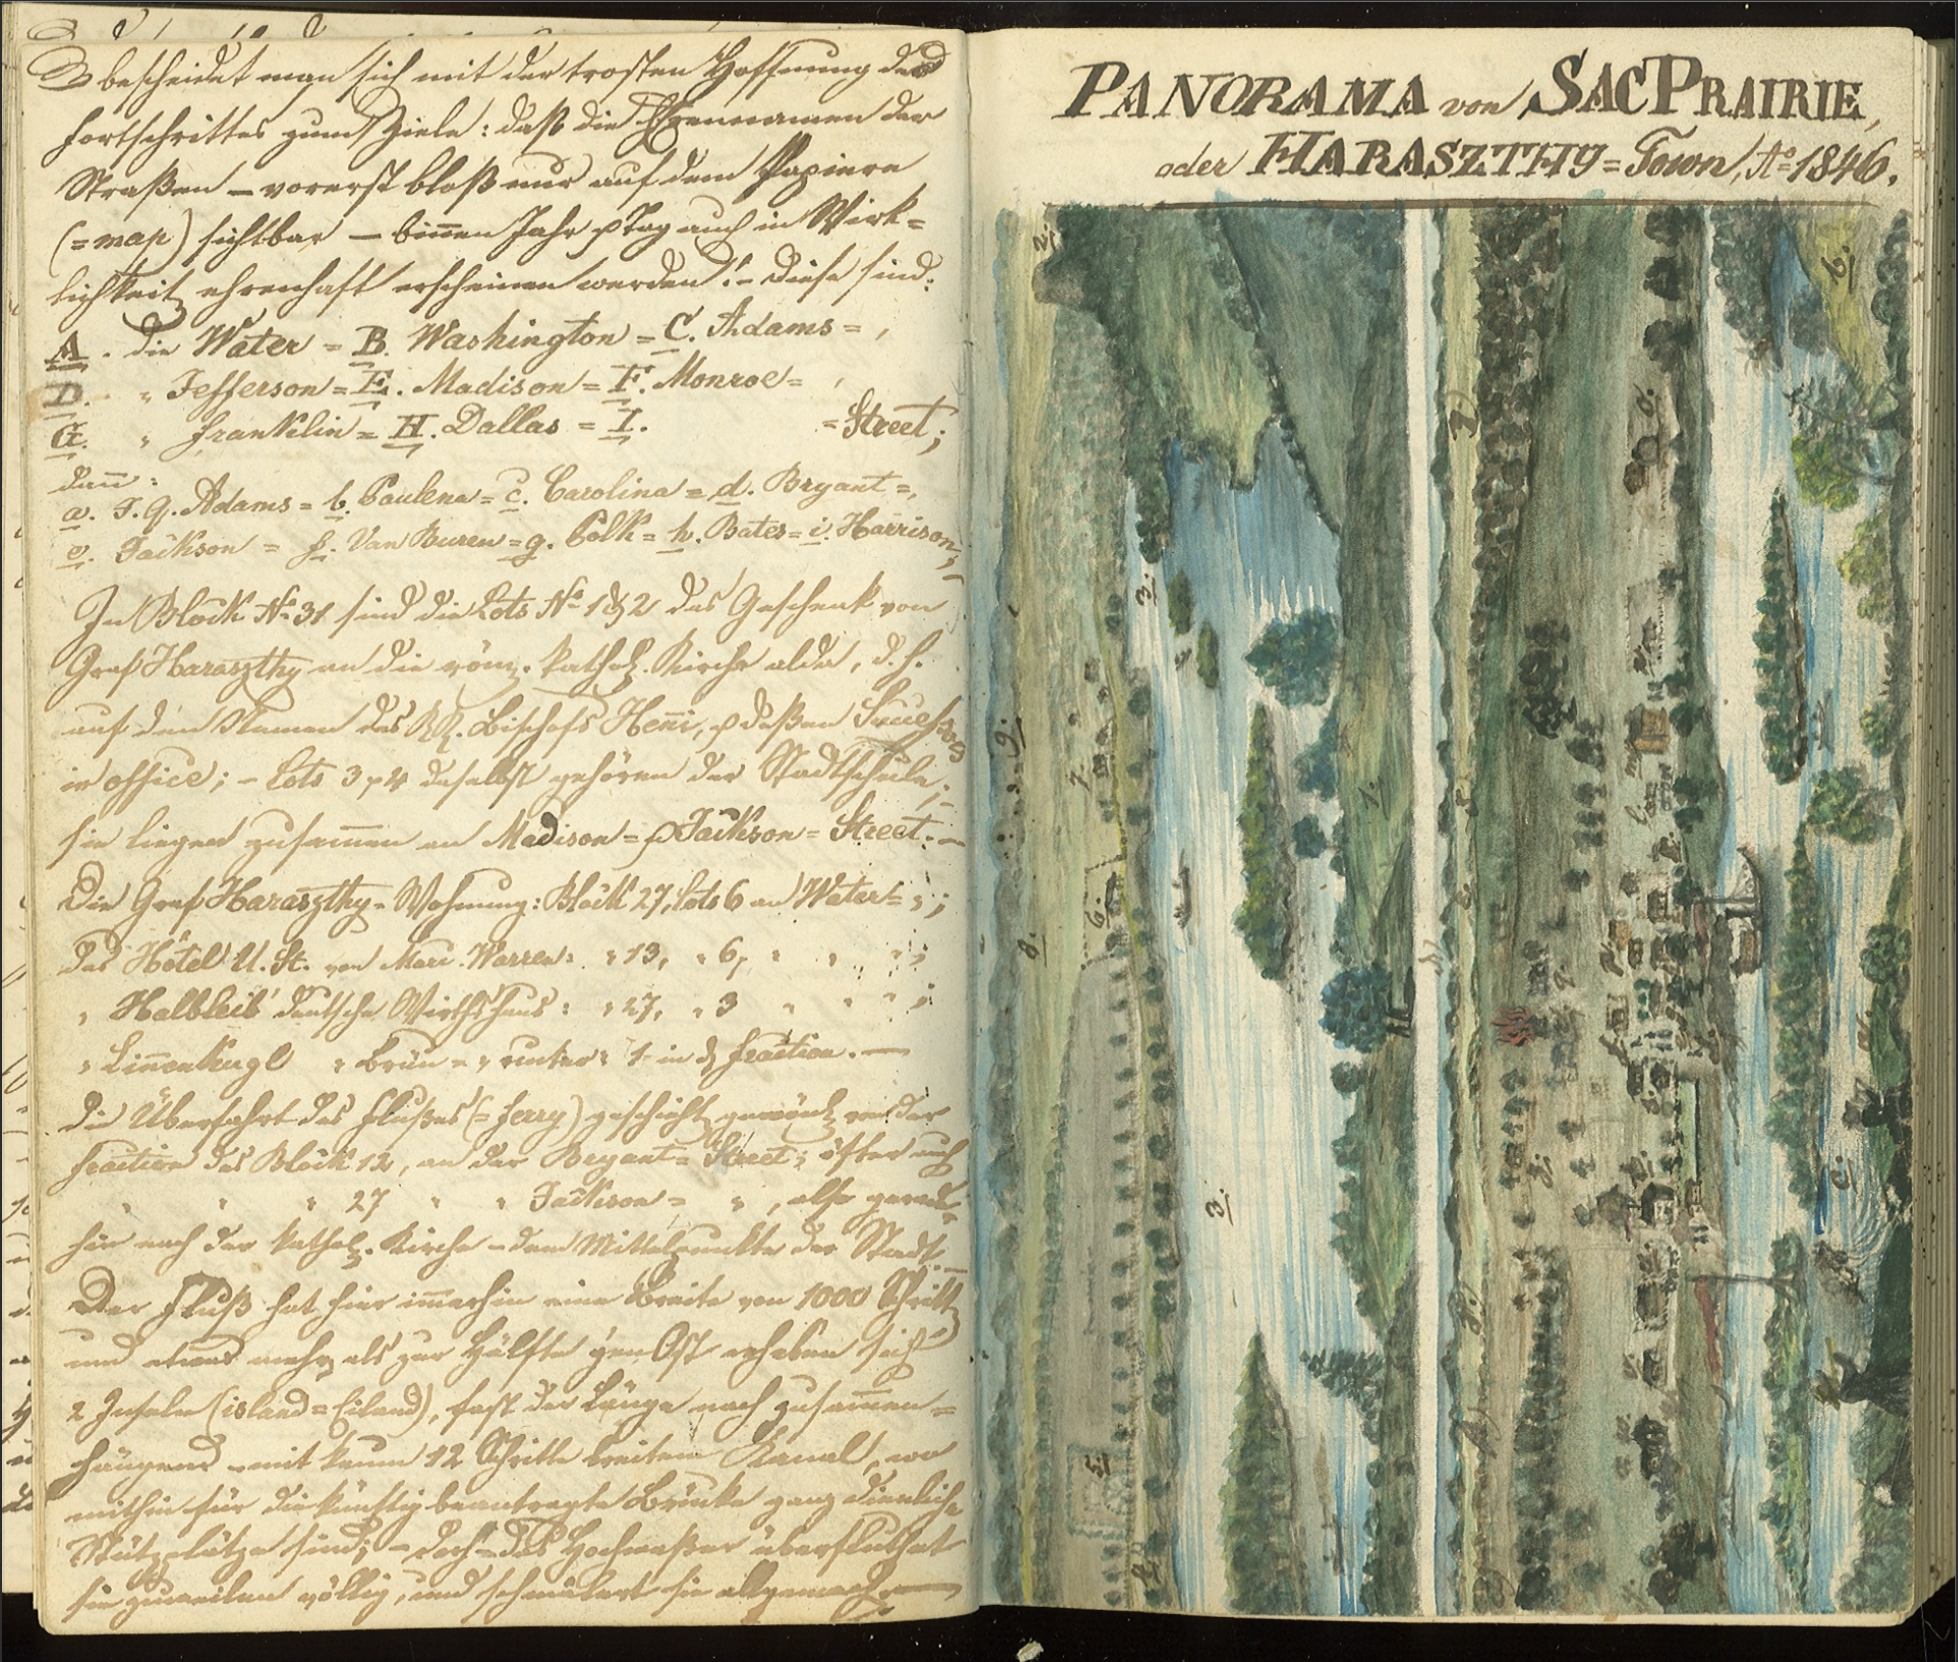 bescheidet man sich mit der trosten Hoffnung des
Fortschrittes zum Ziele: daß die Ehrennamen der
Straßen – vorerst bloß nur auf dem Papiere
(=map) sichtbar – binnen Jahr & Tag auch in Wirk=
lichkeit ehrenhaft erscheinen werden! – Diese sind:
A. die Water = B. Washington = C. Adams = ,
D. " Jefferson = E. Madison = F. Monroe = ,
G. " Franklin = H. Dallas = I. = Street;
dann:
a. J. Q. Adams = b. Paulena = c. Carolina = d. Bryant =,
e. Jackson = f. Van Buren = g. Polk = h. Bates = i. Harrison,
In Block No 31 sind die Lots No 1 & 2 das Geschenk von
Graf Haraszthy an die röm. kathol. Kirche alda, d. h.
auf den Namen des Bischofs Henni, & deßen
in office; – Lots 3 & 4 daselbst gehören der Stadtschule;
sie liegen zusammen an Madison = & Jackson = Street. –
Die Graf Haraszthy-Wohnung: Block 27, Lots 6 an Water = " ;
das Hôtel U. St. von Marc. Warren: " 13, " 6, " " " ;
" Halbleib' deutsche Wirthshaus: " 27, " 3 " " " ;
" Linenkugl " Bräu = " unter: 1 in d. fraction. –
Die Überfahrt des Flußes (= ferry) geschieht von der
fraction des Block 12, an der Bryant = Street; öfter auch
" " " 27 " " Jackson = " , also gerade
hin nach der kathol. Kirche – dem Mittelpunkte der Stadt. –
Der Fluß hat hier immerhin eine Breite von 1000 Schritt
und etwas mehr als zur Hälfte gen Ost erheben sich
2 Inseln (island = Eiland), fast der Länge nach zusammen=
hängend – mit kaum 12 Schritte breitem Kanal, wo
mithin für die künftig beantragte Brücke ganz dienliche
Stützplätze sind; – doch – das Hochwaßer überfluthet
sie zuweilen völlig, und schmälert sie allgemach. –
PANORAMA von SAC PRAIRIE,
oder HARASZTHY = Town, Ao 1846.
2.
6.
3.
9.
7.
1.
8.
6.
3.
5.